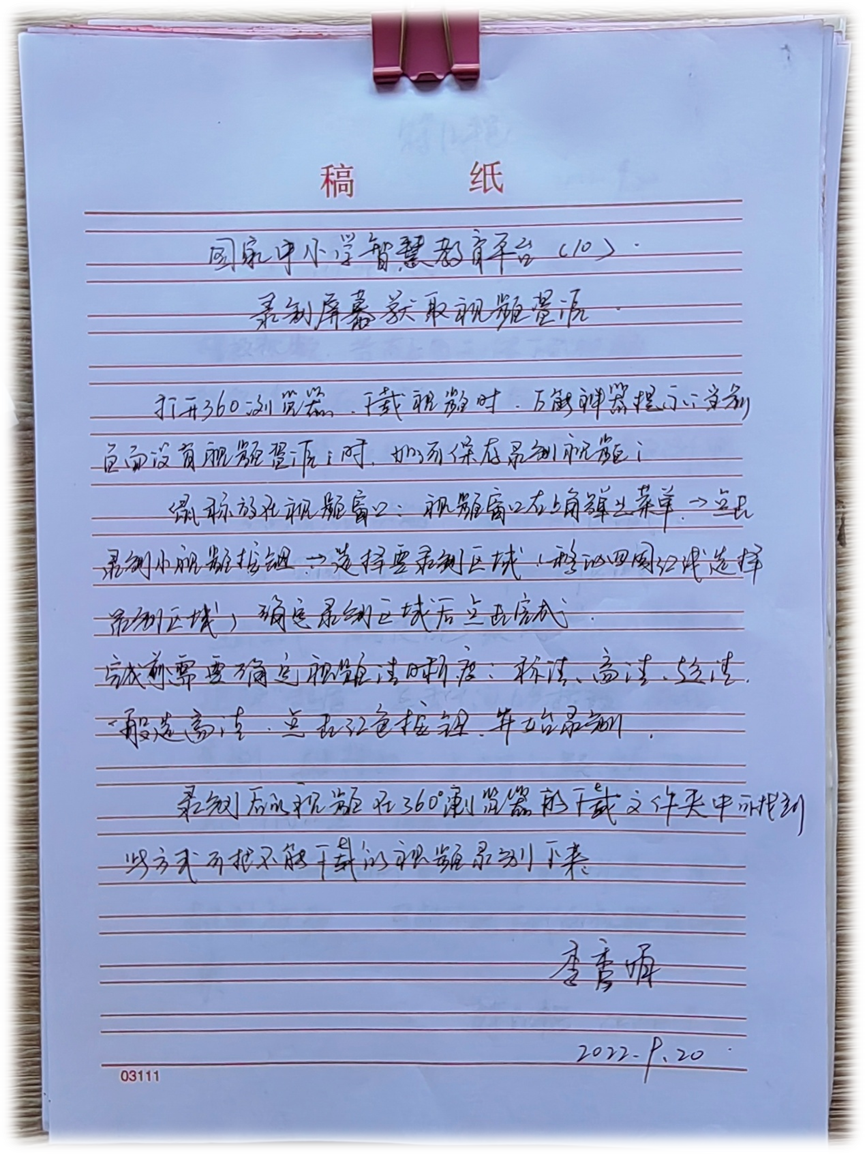 稿 纸
国家中小学智慧教育平台(10)
录制屏幕获取视频资源
打开360浏览器、下载视频时,万能神器提示:
页面没有视频资源;时,如何保存录制视频;
鼠标放在视频窗口:视频窗口右上角弹出菜单→点击
录制小视频按钮→选择要录制区域(移动四周红线选择
录制区域)确定录制区域后点击完成.
完成前需要确定视频清晰度:标清、高清、超清.
一般选高清.点击红色按钮.开始录制.
录制后的视频在360浏览器的下载文件夹中可找到
此方式可把不能下载的视频录制下来。
李
2022.9.20
03111